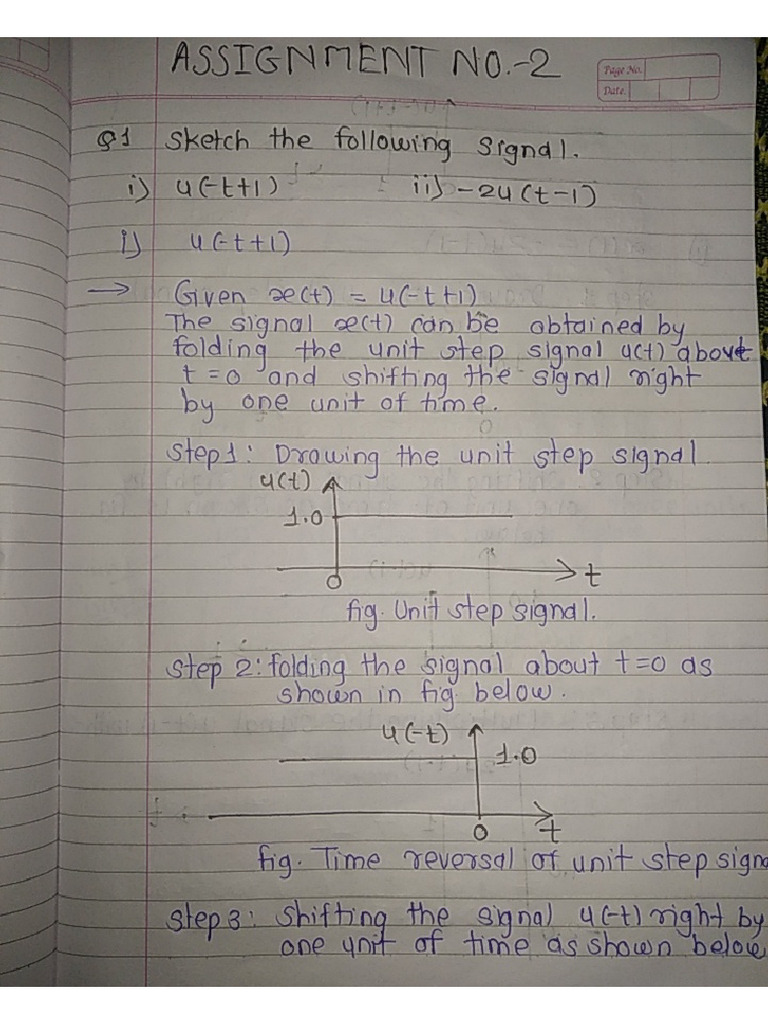 ASSIGNMENT NO.-2
Page No.
Date.
Q1 Sketch the following signal.
i) u(-t+1) ii) -2u(t-1)
i) u(-t+1)
→ Given x(t) = u(-t+1)
The signal x(t) can be obtained by
folding the unit step signal u(t) about
t=0 and shifting the signal right
by one unit of time.
Step1: Drawing the unit step signal.
u(t)
1.0
0
t
fig. Unit step signal.
Step 2: folding the signal about t=0 as
shown in fig. below.
u(-t)
1.0
0
t
fig. Time reversal of unit step signa
Step 3: Shifting the signal u(-t) right by
one unit of time as shown below